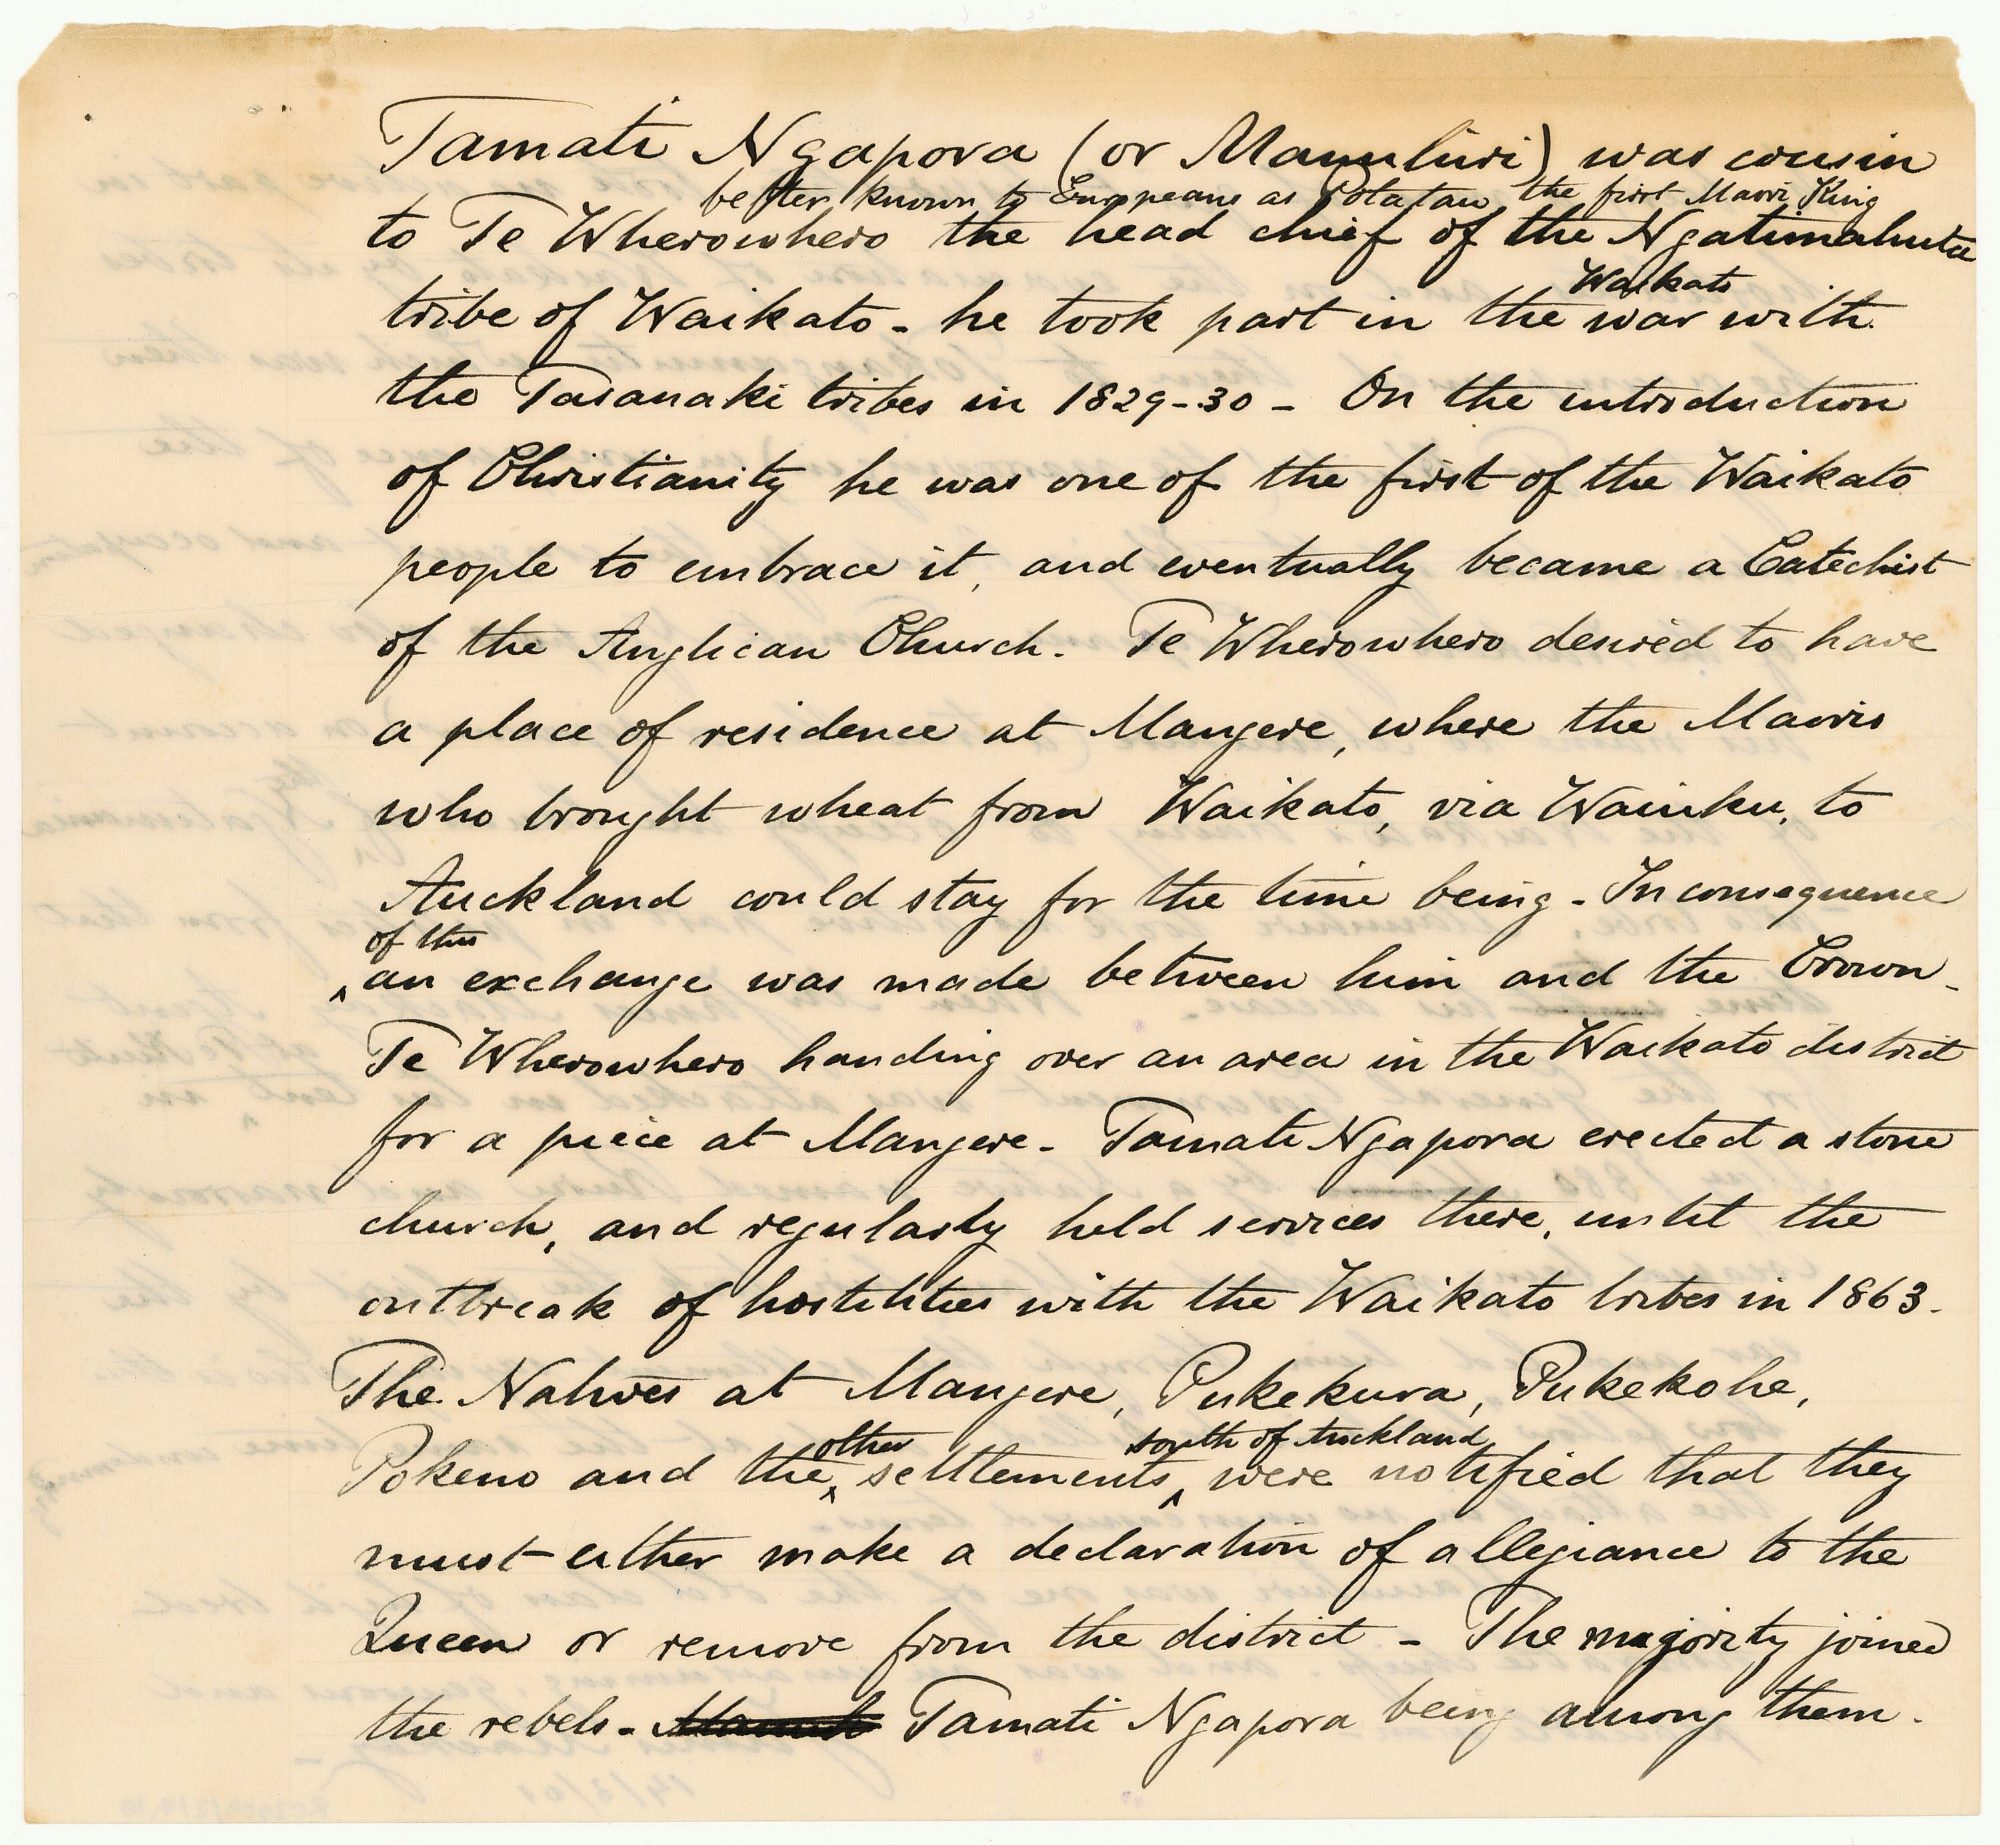 Tamati Ngapora (or Manuhiri) was cousin
better known to Europeans as Potatau the first Maori King
to Te Wherowhero the head chief of the Ngatimahuta
Waikato
tribe of Waikato - he took part in the war with
the Taranaki tribes in 1829-30 - On the introduction
of Christianity he was one of the first of the Waikato
people to embrace it, and eventually became a Catechist
of the Anglican Church. Te Wherowhero desired to have
a place of residence at Mangere, where the Maoris
who brought wheat from Waikato, via Waiuku, to
Auckland could stay for the time being - In consequence
of this
an exchange was made between him and the Crown -
Te Wherowhero handing over an area in the Waikato district
for a piece at Mangere - Tamati Ngapora erected a stone
church, and regularly held services there, until the
outbreak of hostilities with the Waikato tribes in 1863 -
The Natives at Mangere, Pukekura, Pukekohe,
other south of Auckland
Pokeno and the settlements were notified that they
must either make a declaration of allegiance to the
Queen or remove from the district - The majority joined
the rebels - Tamati Ngapora being among them -